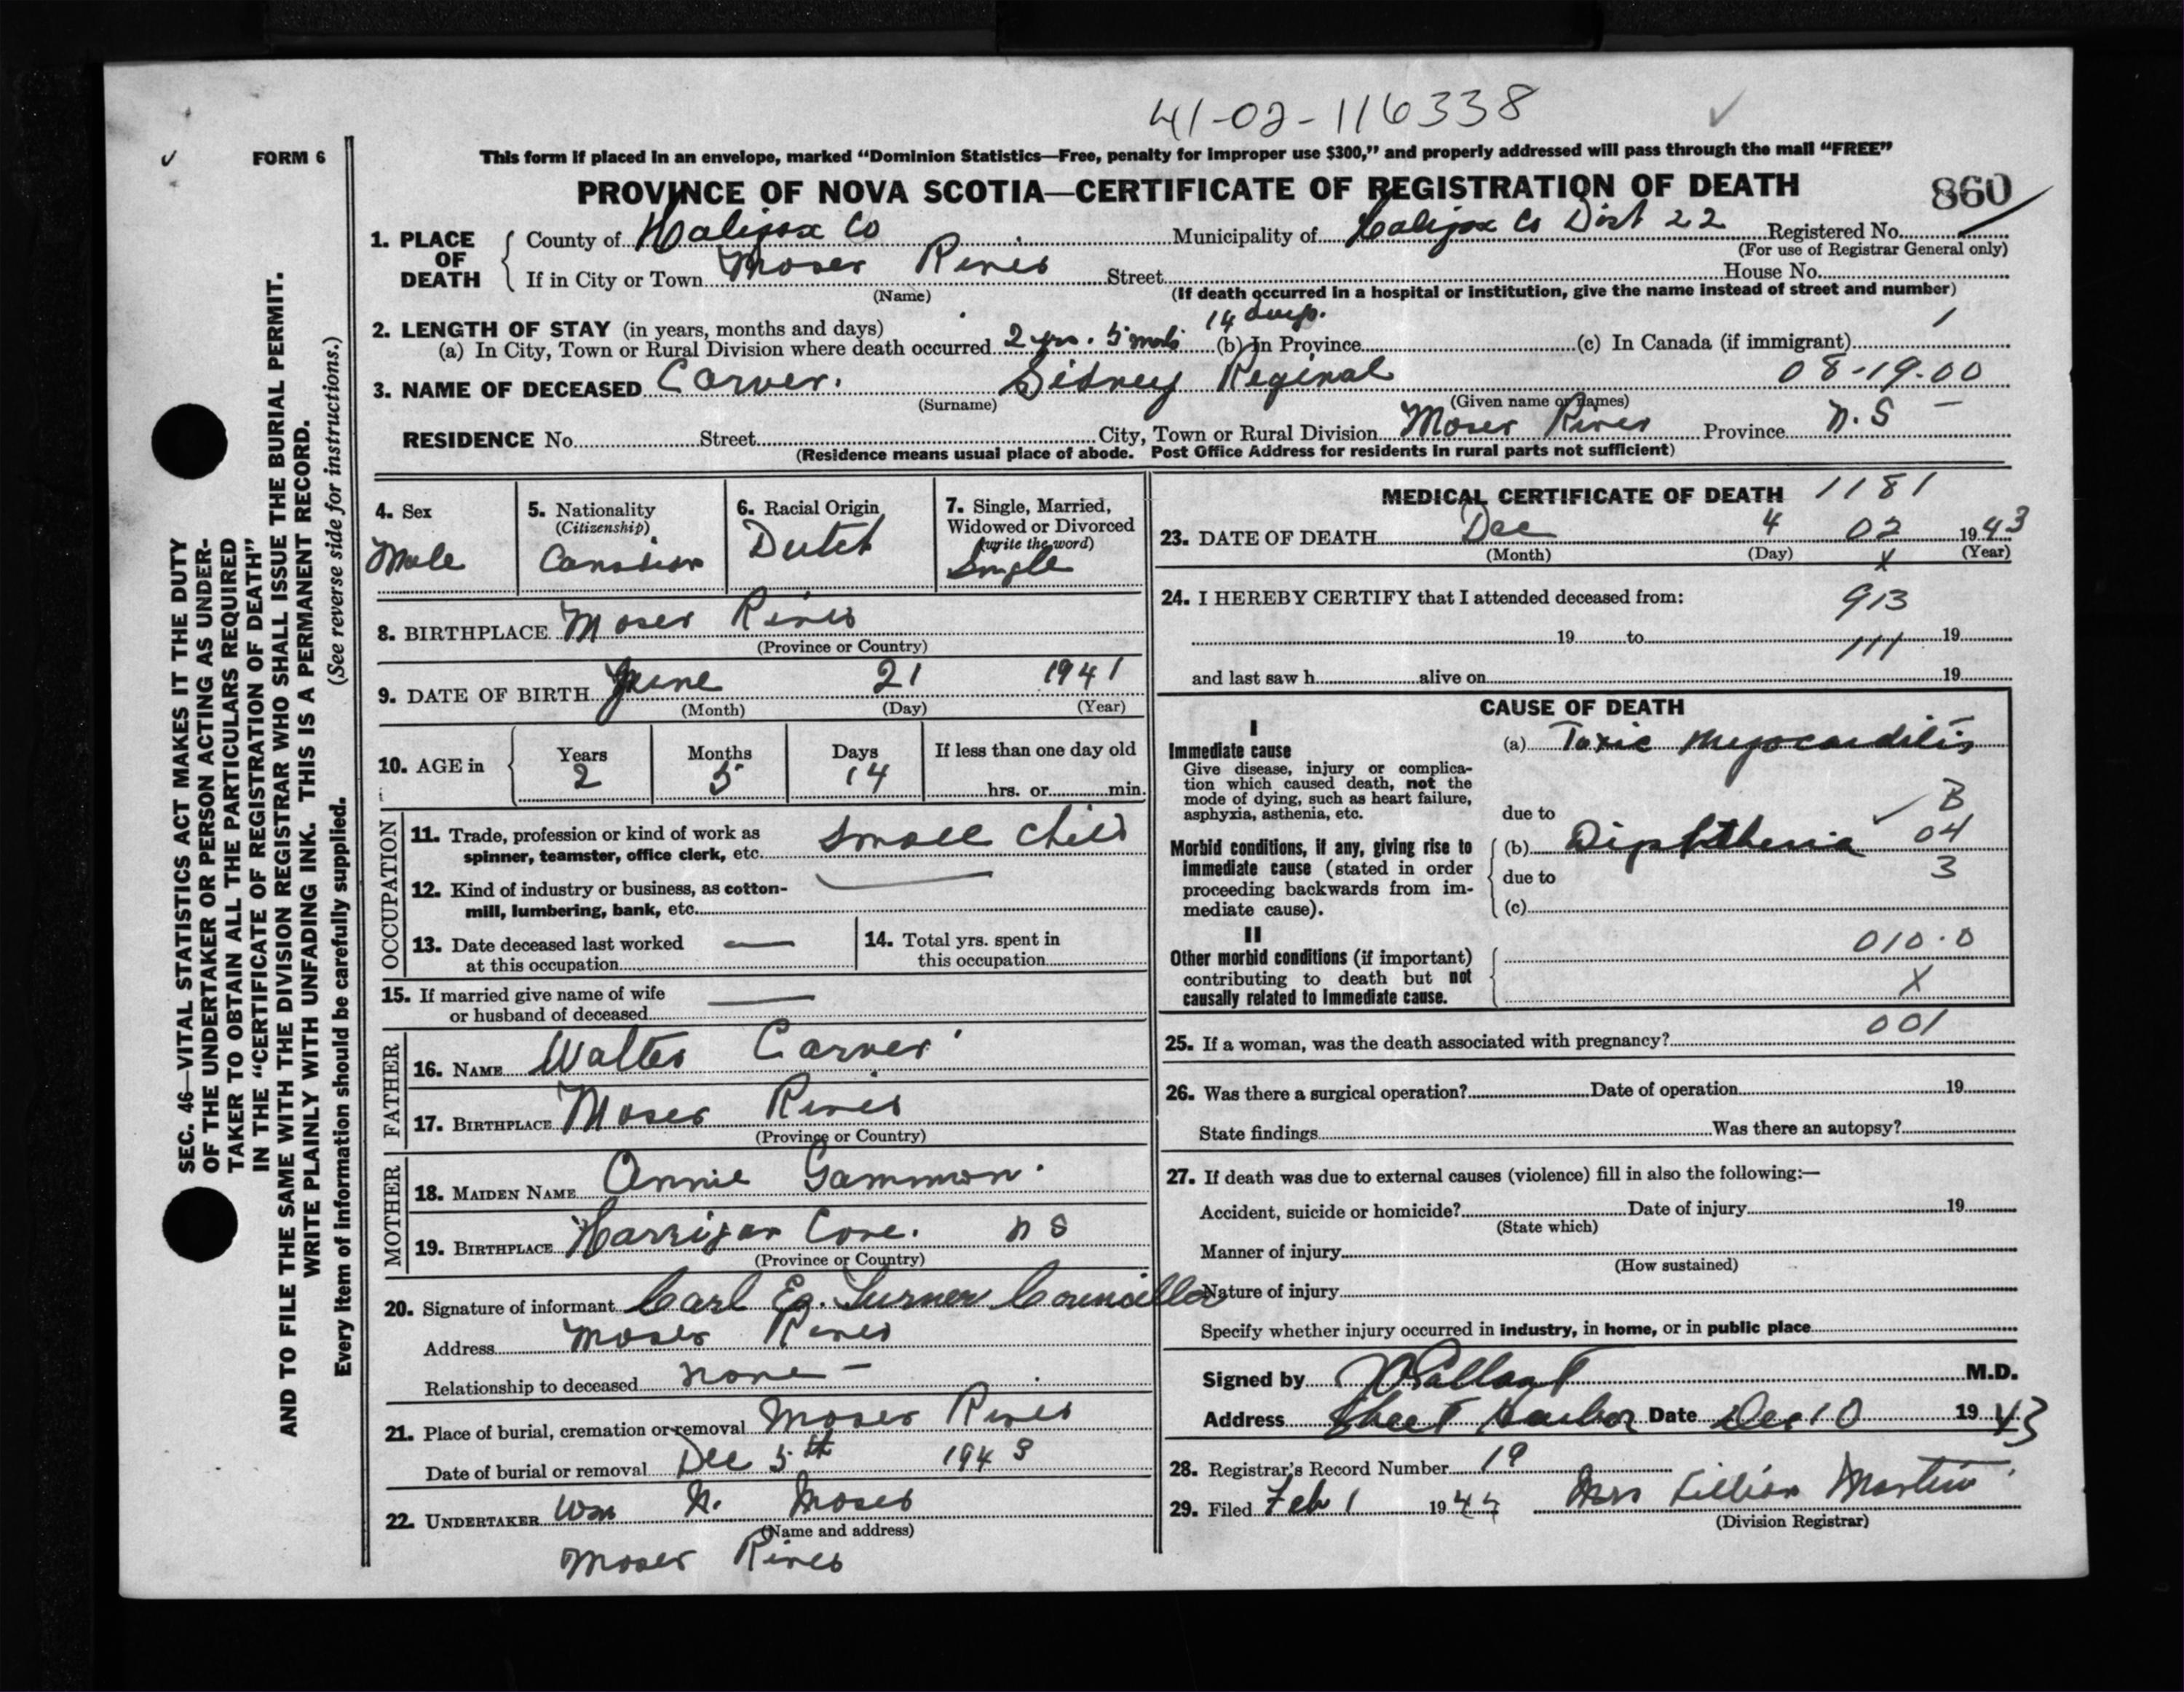 41-02-116338
FORM 6
This form if placed in an envelope, marked “Dominion Statistics—Free, penalty for improper use $300,” and properly addressed will pass through the mail “FREE”
PROVINCE OF NOVA SCOTIA—CERTIFICATE OF REGISTRATION OF DEATH
860
1. PLACE OF DEATH
County of Halifax Co Municipality of Halifax Co Dist 22 Registered No.
(For use of Registrar General only)
If in City or Town Moser River Street House No.
(Name) (If death occurred in a hospital or institution, give the name instead of street and number)
2. LENGTH OF STAY (in years, months and days)
14 days.
(a) In City, Town or Rural Division where death occurred 2 yrs. 5 mos (b) In Province (c) In Canada (if immigrant)
3. NAME OF DECEASED Carver. Sidney Reginal 08-19-00
(Surname) (Given name or names)
RESIDENCE No. Street City, Town or Rural Division Moser River Province N.S —
(Residence means usual place of abode. Post Office Address for residents in rural parts not sufficient)
4. Sex
Male
5. Nationality
(Citizenship)
Canadian
6. Racial Origin
Dutch
7. Single, Married,
Widowed or Divorced
(write the word)
Single
8. BIRTHPLACE Moser River
(Province or Country)
9. DATE OF BIRTH June 21 1941
(Month) (Day) (Year)
10. AGE in
Years Months Days If less than one day old
2 5 14
hrs. or min.
OCCUPATION
11. Trade, profession or kind of work as
spinner, teamster, office clerk, etc. Small Child
12. Kind of industry or business, as cotton-
mill, lumbering, bank, etc. —
13. Date deceased last worked
at this occupation —
14. Total yrs. spent in
this occupation
15. If married give name of wife
or husband of deceased —
FATHER
16. NAME Walter Carver
17. BIRTHPLACE Moser River
(Province or Country)
MOTHER
18. MAIDEN NAME Annie Gammon.
19. BIRTHPLACE Harrigan Cove. N S
(Province or Country)
20. Signature of informant Carl Turner Councillor
Address Moser River
Relationship to deceased none —
21. Place of burial, cremation or removal Moser River
Date of burial or removal Dec 5th 1943
22. UNDERTAKER Wm Moser
(Name and address)
Moser River
MEDICAL CERTIFICATE OF DEATH 1181
23. DATE OF DEATH Dec 4 02 1943
(Month) (Day) X (Year)
24. I HEREBY CERTIFY that I attended deceased from:
913
19 to 19
111
and last saw h alive on 19
CAUSE OF DEATH
I
Immediate cause
Give disease, injury or complica-
tion which caused death, not the
mode of dying, such as heart failure,
asphyxia, asthenia, etc.
(a) Toxic Myocarditis
due to B
Morbid conditions, if any, giving rise to
immediate cause (stated in order
proceeding backwards from im-
mediate cause).
(b) Diphtheria 04
due to 3
(c)
II
Other morbid conditions (if important)
contributing to death but not
causally related to immediate cause.
010.0
X
001
25. If a woman, was the death associated with pregnancy?
26. Was there a surgical operation? Date of operation 19
State findings Was there an autopsy?
27. If death was due to external causes (violence) fill in also the following:—
Accident, suicide or homicide? Date of injury 19
(State which)
Manner of injury
(How sustained)
Nature of injury
Specify whether injury occurred in industry, in home, or in public place
Signed by M.D.
Address Sheet Harbor Date Dec 10 1943
28. Registrar's Record Number 19
29. Filed Feb 1 1944 Mrs Lillian Martin
(Division Registrar)
SEC. 46—VITAL STATISTICS ACT MAKES IT THE DUTY
OF THE UNDERTAKER OR PERSON ACTING AS UNDER-
TAKER TO OBTAIN ALL THE PARTICULARS REQUIRED
IN THE “CERTIFICATE OF REGISTRATION OF DEATH”
AND TO FILE THE SAME WITH THE DIVISION REGISTRAR WHO SHALL ISSUE THE BURIAL PERMIT.
WRITE PLAINLY WITH UNFADING INK. THIS IS A PERMANENT RECORD.
(See reverse side for instructions.)
Every item of information should be carefully supplied.